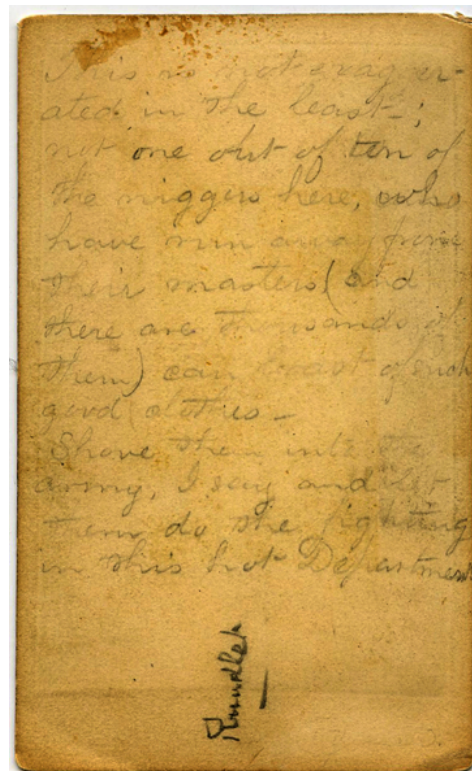 This is not exagger-
ated in the least—;
not one out of ten of
the niggers here, who
have run away from
their masters (and
there are thousands of
them) can boast of such
good clothes—
Shove them into the
army, I say and let
them do the fighting
in this hot Department
Rundlet